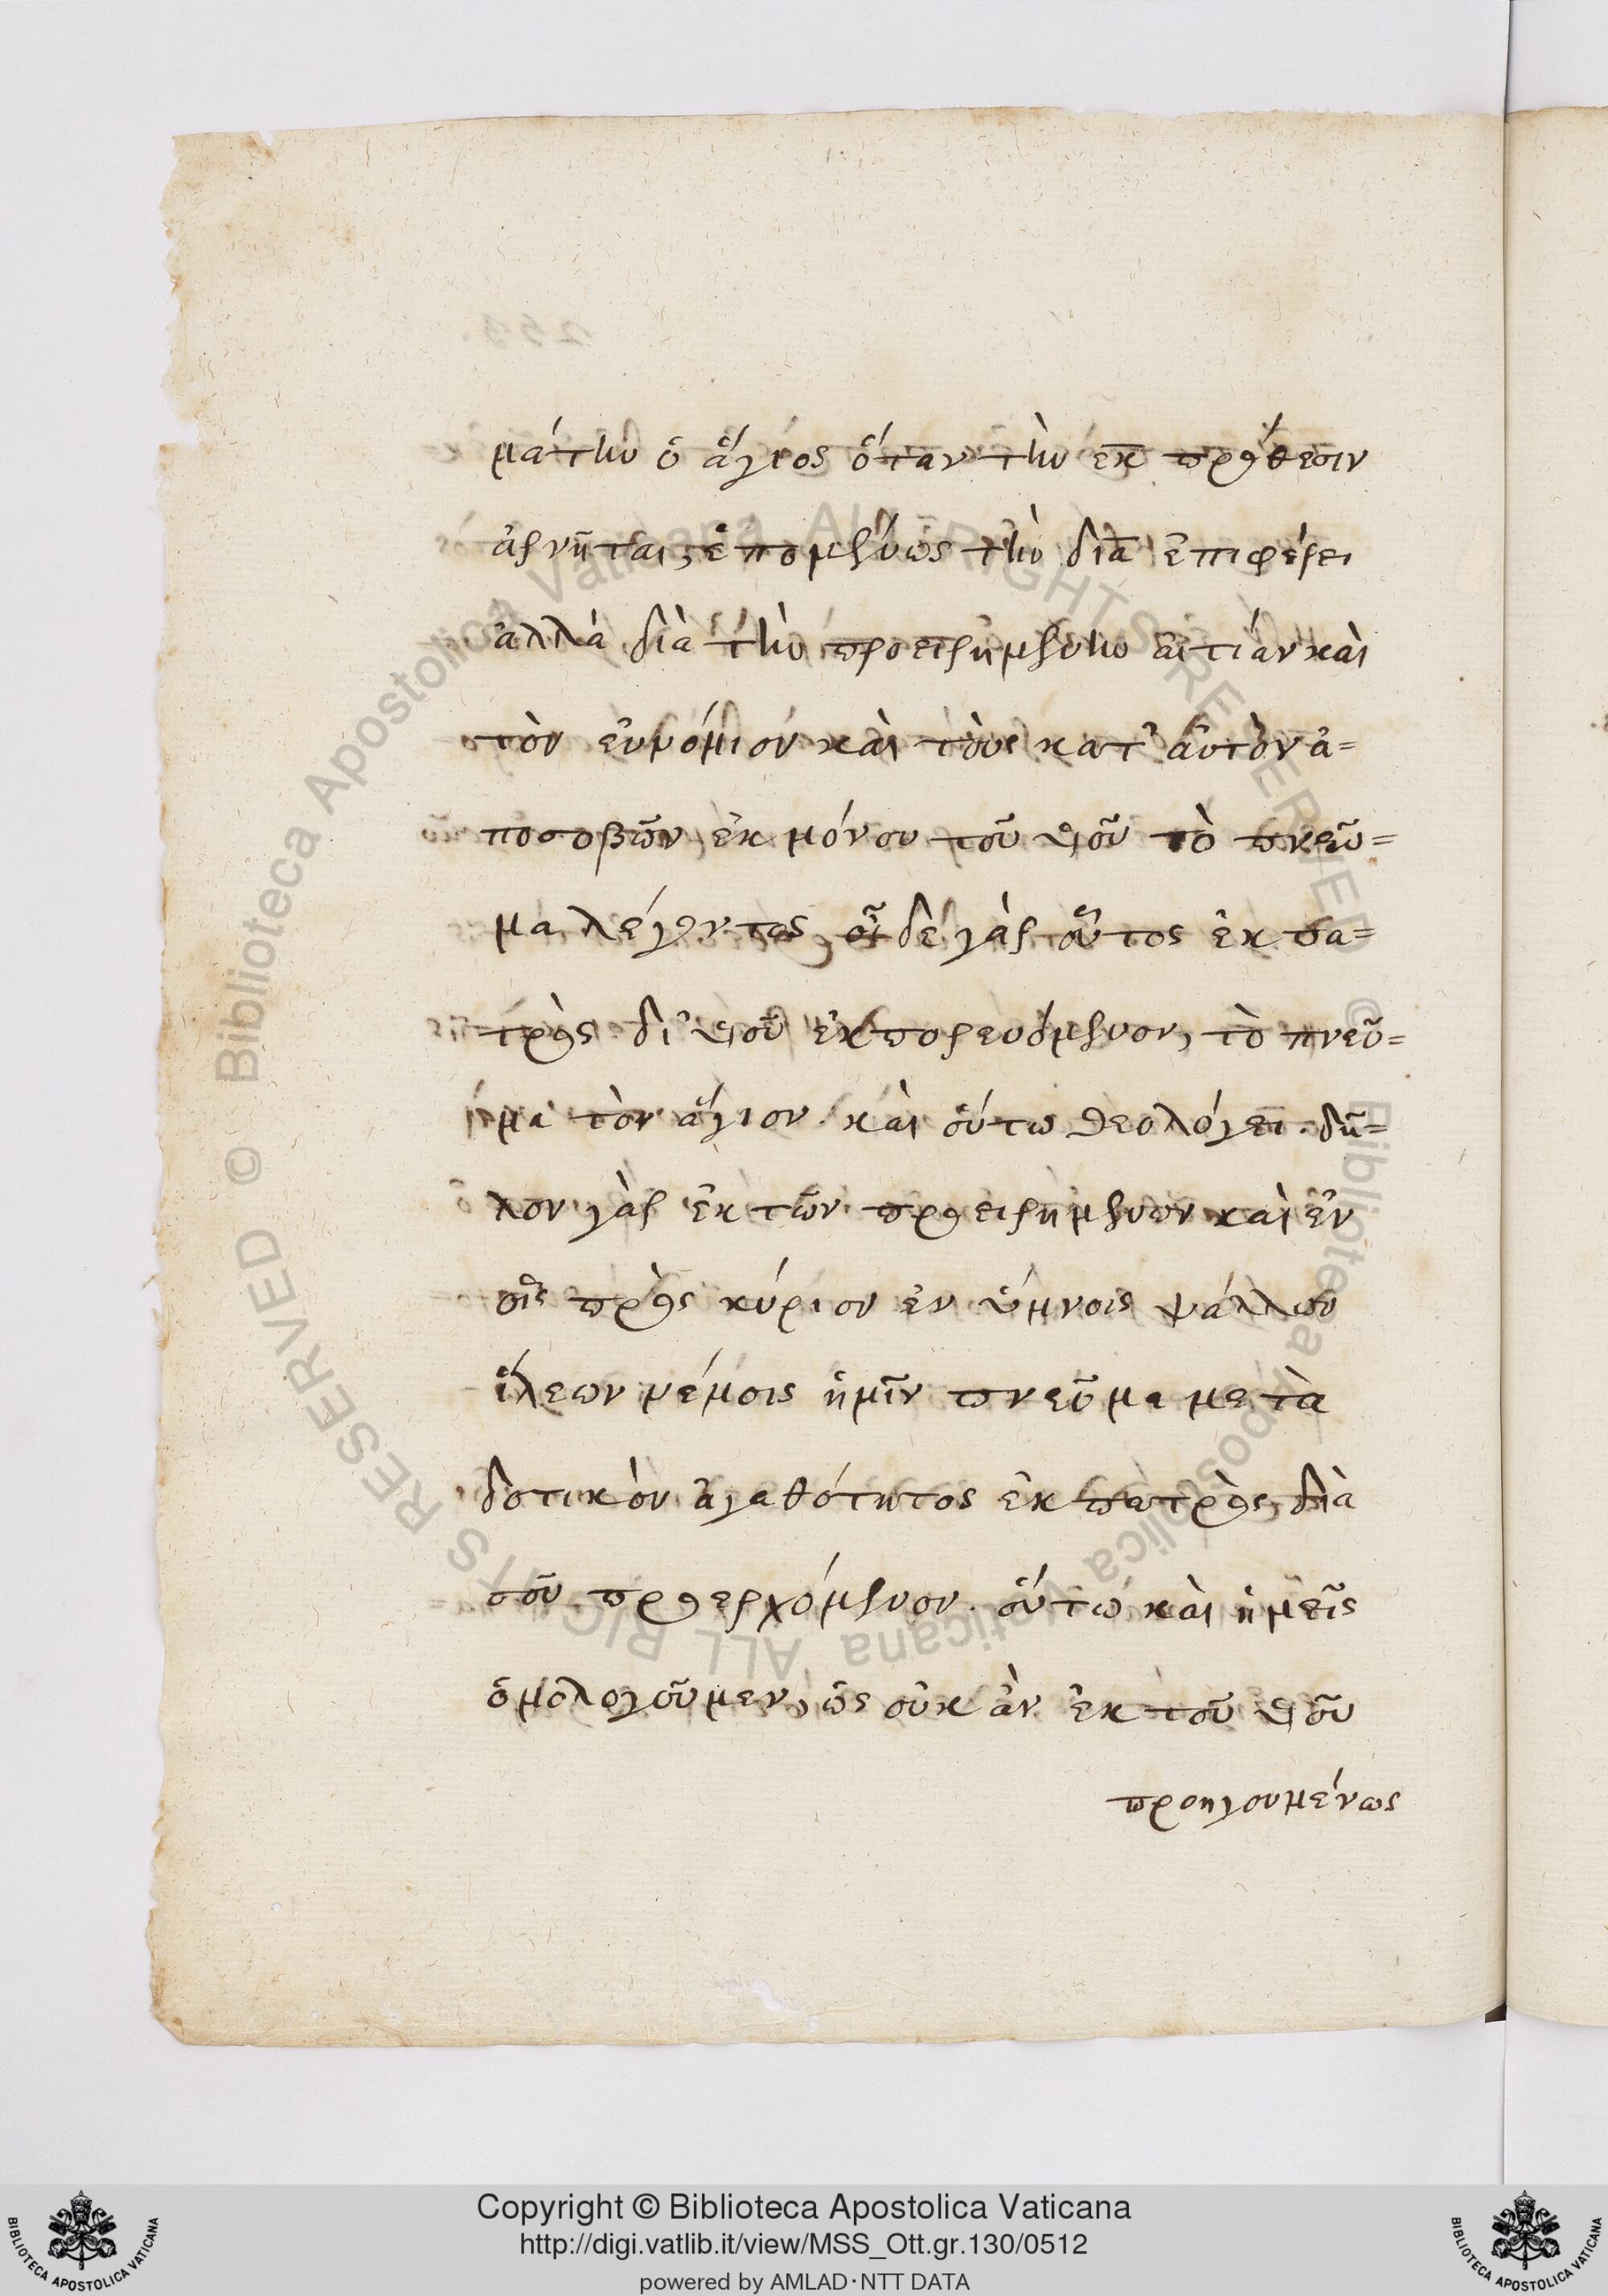 μάτην ὁ ἅγιος ὅταν τὴν ἐκ πρόθεσιν
ἀρνῆται, ἑπομένως τὴν διὰ ἐπιφέρει
ἀλλὰ διὰ τὴν προειρημένην αἰτίαν καὶ
τὸν εὐνόμιον καὶ τοὺς κατ' αὐτὸν ἀ=
ποσοβῶν, ἐκ μόνου τοῦ υἱοῦ τὸ πνεῦ=
μα λέγοντας, οὐδὲ γὰρ οὗτος ἐκ πα=
τρὸς δι' υἱοῦ ἐκπορευόμενον, τὸ πνεῦ=
μα τὸν ἅγιον. καὶ οὕτω θεολόγει. δῆ=
λον γὰρ ἐκ τῶν προειρημένων καὶ ἐν
οἷς πρὸς κύριον ἐν ὕμνοις ψάλλων
ἵλεων νέμοις ἡμῖν πνεῦμα μετὰ
δοτικὸν ἀγαθότητος ἐκ πατρὸς, διὰ
σοῦ προερχόμενον. οὕτω καὶ ἡμεῖς
ὁμολογοῦμεν, ὡς οὐκ ἂν ἐκ τοῦ υἱοῦ
προηγουμένως
© Biblioteca Apostolica Vaticana ALL RIGHTS RESERVED © Biblioteca Apostolica Vaticana ALL RIGHTS RESERVED
Copyright © Biblioteca Apostolica Vaticana
http://digi.vatlib.it/view/MSS_Ott.gr.130/0512
powered by AMLAD·NTT DATA
BIBLIOTECA APOSTOLICA VATICANA
BIBLIOTECA APOSTOLICA VATICANA